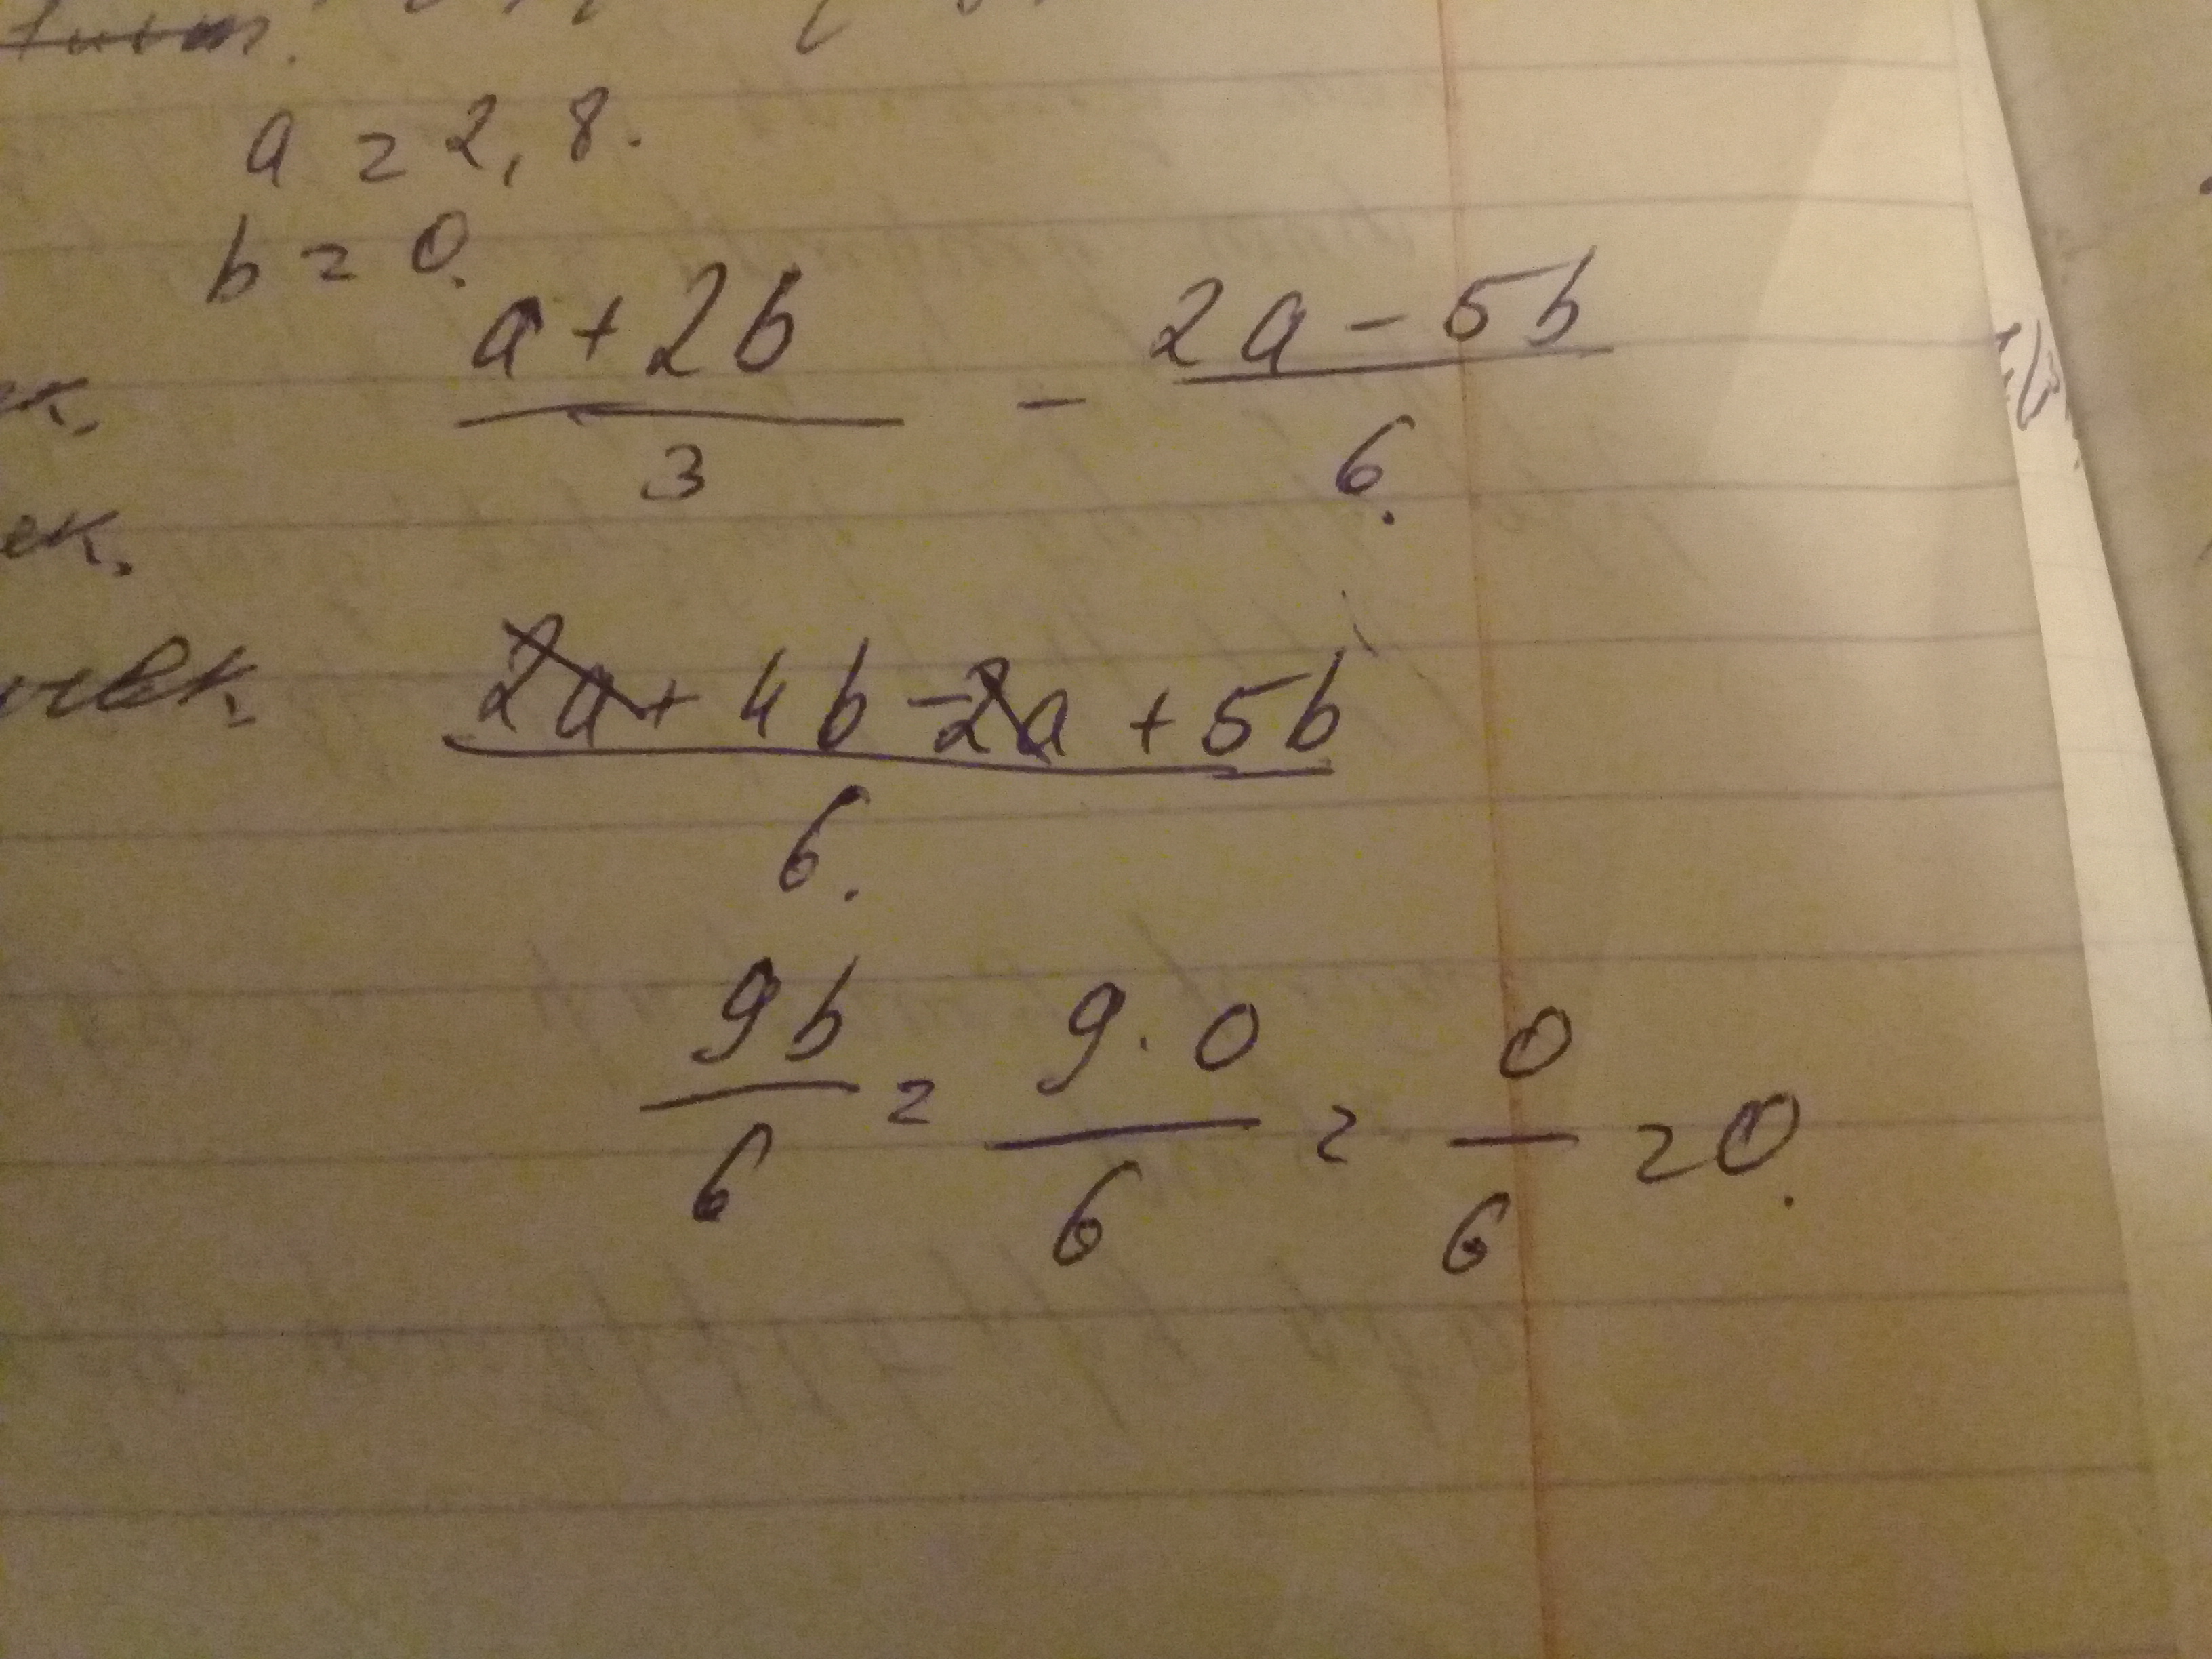 a = 2,8.
b = 0.
a + 2b / 3 - 2a - 5b / 6.
2a + 4b - 2a + 5b / 6.
9b / 6 = 9 · 0 / 6 = 0 / 6 = 0.